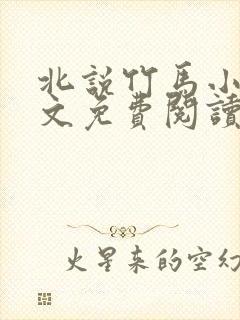 北説竹馬小
文免費閱讀
火星来的空幻